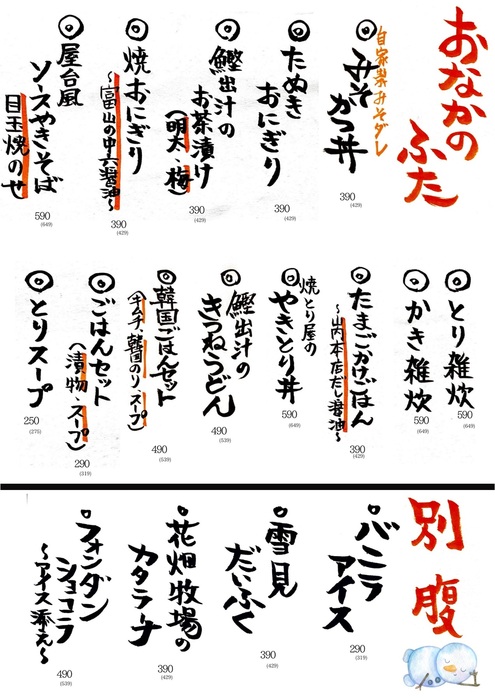 おなかの
ふた
自家製みそダレ
みそかつ丼
390
(429)
たぬき
おにぎり
390
(429)
鰹出汁の
お茶漬け
(明太、梅)
390
(429)
焼おにぎり
〜富山の中六醤油〜
390
(429)
屋台風
ソースやきそば
目玉焼のせ
590
(649)
とり雑炊
590
(649)
かき雑炊
590
(649)
たまごかけごはん
〜山内本店だし醤油〜
390
(429)
焼とり屋の
やきとり丼
590
(649)
鰹出汁の
きつねうどん
490
(539)
韓国ごはんセット
(キムチ、韓国のり、スープ)
490
(539)
ごはんセット
(漬物、スープ)
290
(319)
とりスープ
250
(275)
別腹
バニラ
アイス
290
(319)
雪見
だいふく
390
(429)
花畑牧場の
カタラーナ
390
(429)
フォンダン
ショコラ
〜アイス添え〜
490
(539)